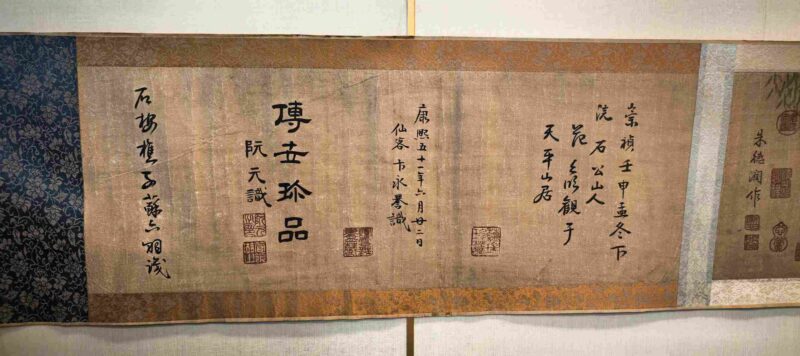 朱德潤作
崇禎壬申孟冬下
浣石公山人
范允臨觀于
天平山居
康熙五十一年六月廿二日
仙客卞永譽識
傳世珍品
阮元識
石樓樵子蘇六朋識